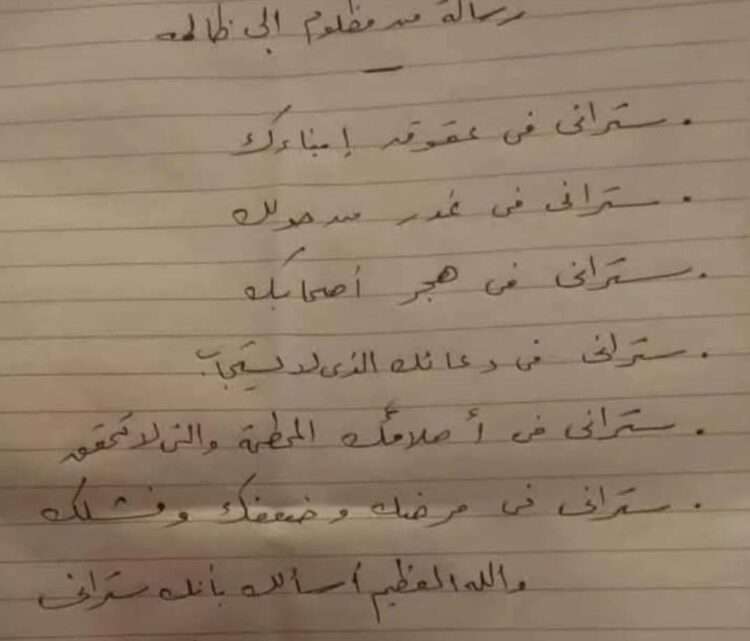 رسالة من مظلوم إلى ظالمه
. ستراني في عقوق إبناءك
. ستراني في غدر من حولك
. ستراني في هجر أصحابك
. ستراني في دعائك الذي لا يستجاب
. ستراني في أحلامك المحطمة والتي لا تحقق
. ستراني في مرضك وضعفك وفشلك
والله العظيم أسألك بأنك ستراني